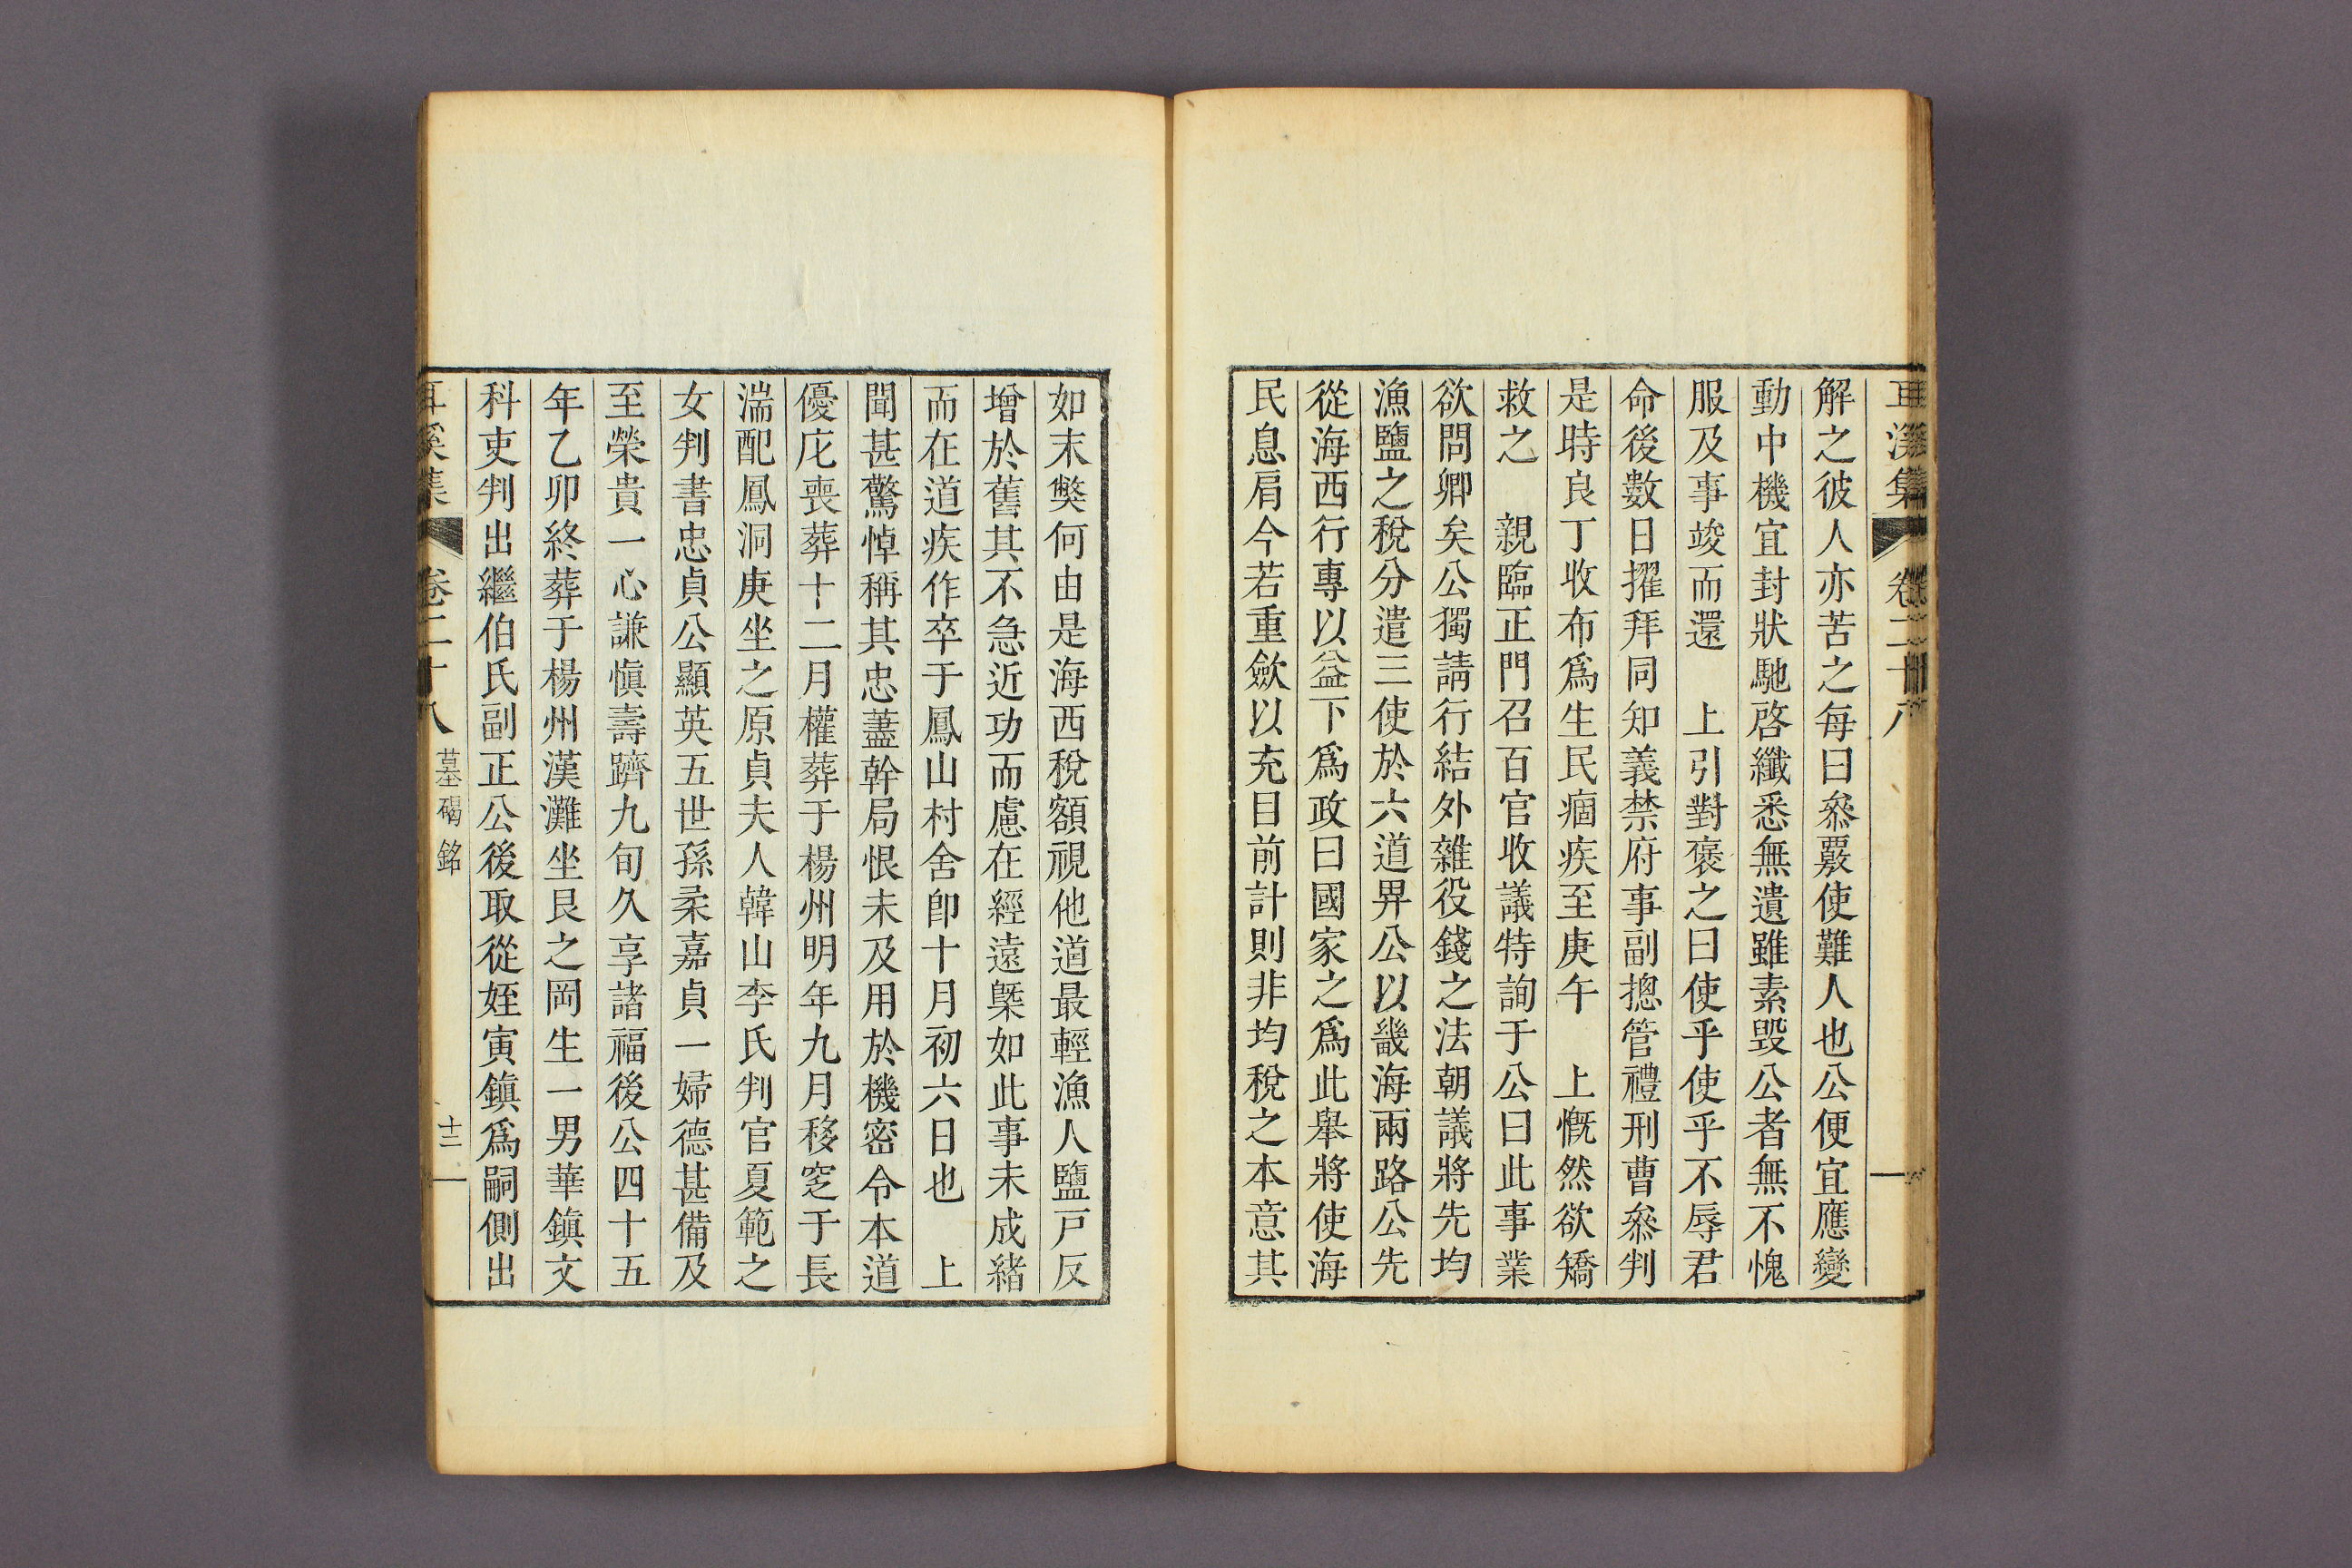 耳溪集 卷二十八
解之彼人亦苦之每曰叅覈使難人也公便宜應變
動中機宜封狀馳啓纖悉無遺雖素毁公者無不愧
服及事竣而還 上引對褒之曰使乎使乎不辱君
命後數日擢拜同知義禁府事副摠管禮刑曹叅判
是時良丁收布爲生民痼疾至庚午 上慨然欲矯
救之 親臨正門召百官收議特詢于公曰此事業
欲問卿矣公獨請行結外雜役錢之法朝議將先均
漁鹽之稅分遣三使於六道畀公以畿海兩路公先
從海西行專以益下爲政曰國家之爲此擧將使海
民息肩今若重歛以充目前計則非均稅之本意其
如末獘何由是海西稅額視他道最輕漁人鹽戸反
增於舊其不急近功而慮在經遠槩如此事未成緖
而在道疾作卒于鳳山村舍卽十月初六日也 上
聞甚驚悼稱其忠藎幹局恨未及用於機密令本道
優庀喪葬十二月權葬于楊州明年九月移窆于長
湍配鳳洞庚坐之原貞夫人韓山李氏判官夏範之
女判書忠貞公顯英五世孫柔嘉貞一婦德甚備及
至榮貴一心謙愼壽躋九旬久享諸福後公四十五
年乙卯終葬于楊州漢灘坐艮之岡生一男華鎭文
科吏判出繼伯氏副正公後取從姪寅鎭爲嗣側出
耳溪集 卷二十八 墓碣銘 十二